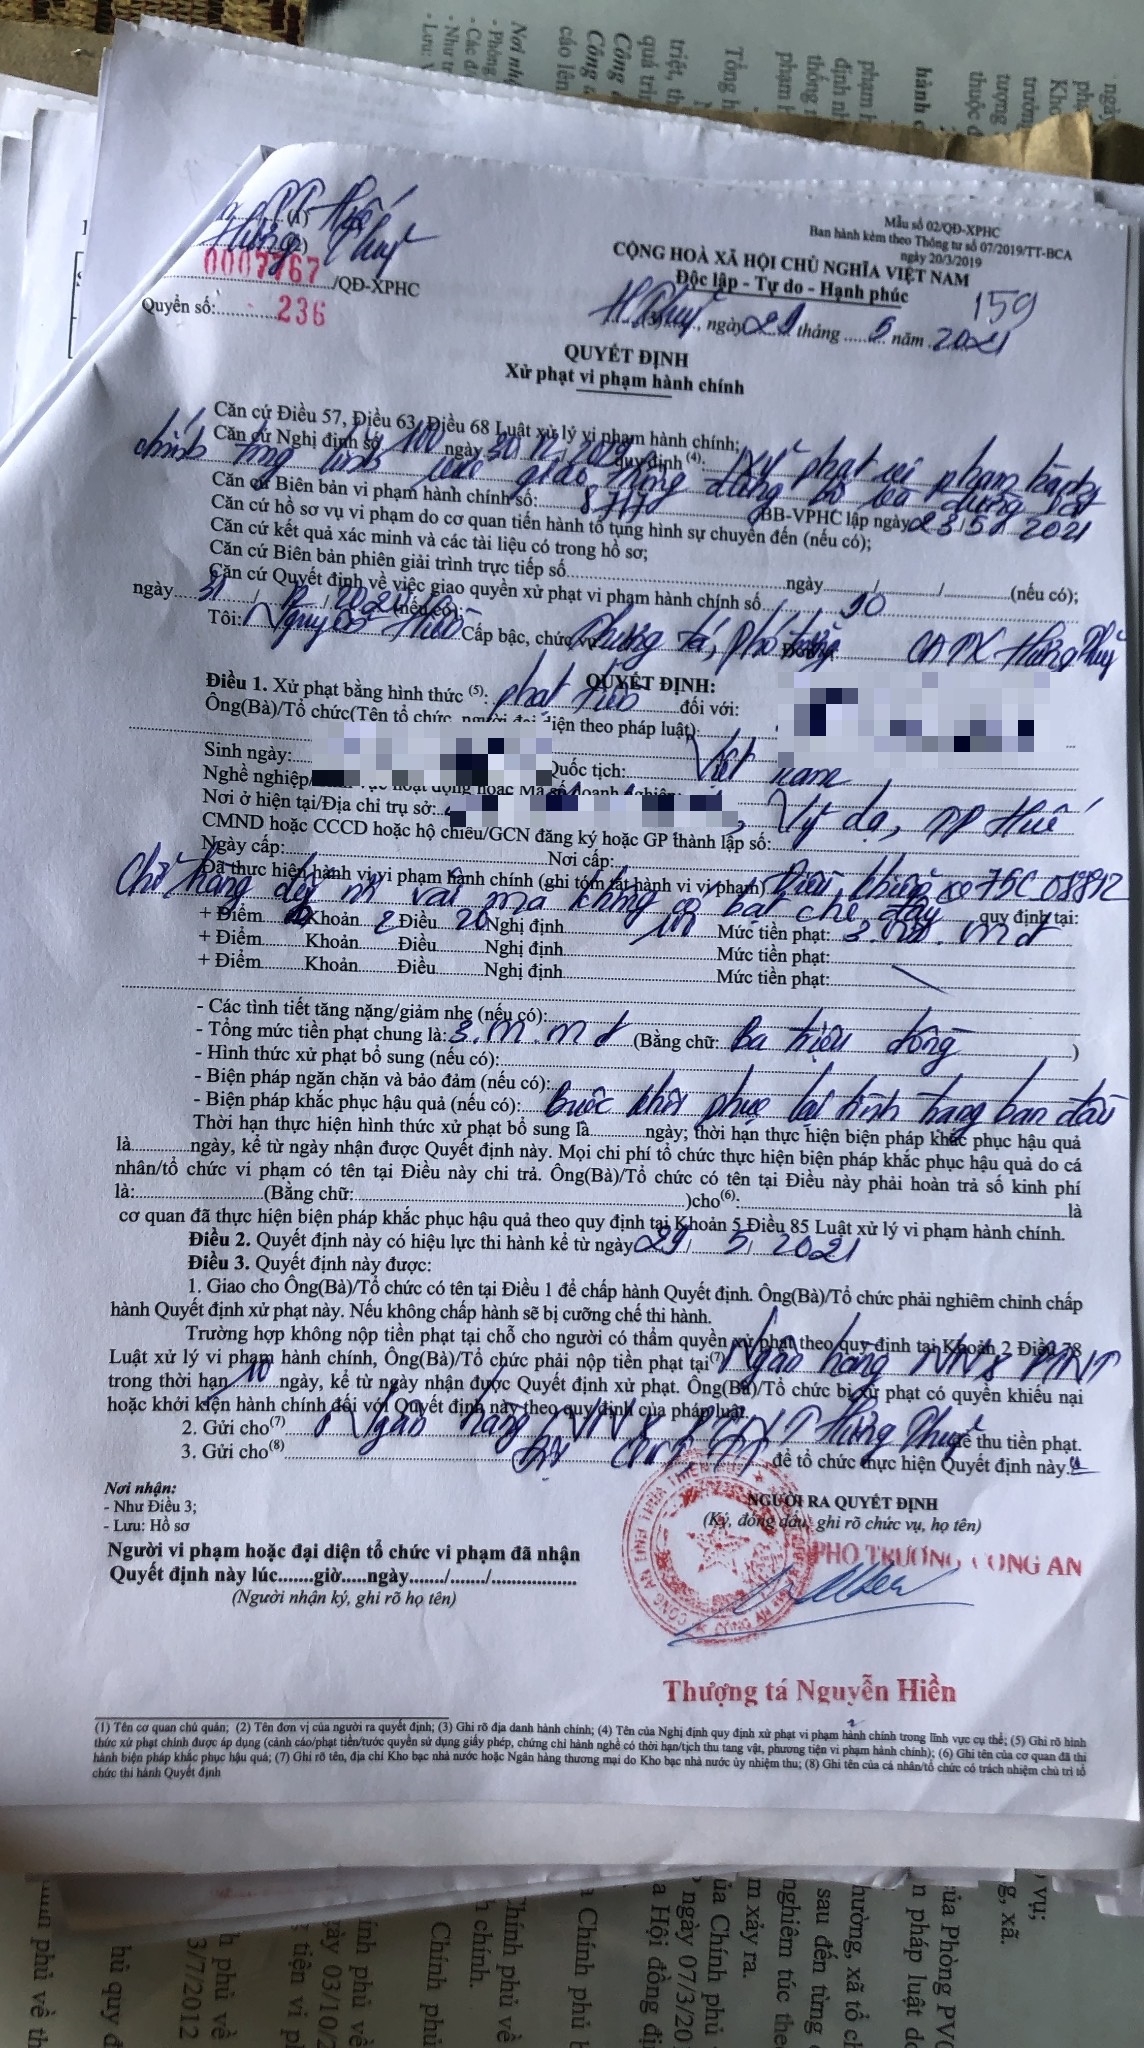 Mẫu số 02/QĐ-XPHC
Ban hành kèm theo Thông tư số 07/2019/TT-BCA
ngày 20/3/2019
(1) TP Huế
(2) Hương Thuỷ
0007767/QĐ-XPHC
Quyển số: 236
CỘNG HOÀ XÃ HỘI CHỦ NGHĨA VIỆT NAM
Độc lập - Tự do - Hạnh phúc
159
H.Thuỷ (3), ngày 29 tháng 5 năm 2021
QUYẾT ĐỊNH
Xử phạt vi phạm hành chính
Căn cứ Điều 57, Điều 63, Điều 68 Luật xử lý vi phạm hành chính;
Căn cứ Nghị định số 100 ngày 30/12/2019 quy định (4): xử phạt vi phạm hành
chính trong lĩnh vực giao thông đường bộ và đường sắt
Căn cứ Biên bản vi phạm hành chính số: /BB-VPHC lập ngày 23/5/2021
Căn cứ hồ sơ vụ vi phạm do cơ quan tiến hành tố tụng hình sự chuyển đến (nếu có);
Căn cứ kết quả xác minh và các tài liệu có trong hồ sơ;
Căn cứ Biên bản phiên giải trình trực tiếp số ngày / / (nếu có);
Căn cứ Quyết định về việc giao quyền xử phạt vi phạm hành chính số 90
ngày 31/12/2020 (nếu có);
Tôi: Nguyễn Hiền Cấp bậc, chức vụ Thượng tá, phó trưởng CATX Hương Thuỷ
QUYẾT ĐỊNH:
Điều 1. Xử phạt bằng hình thức (5): phạt tiền đối với:
Ông(Bà)/Tổ chức(Tên tổ chức, người đại diện theo pháp luật):
Sinh ngày: Quốc tịch: Việt Nam
Nghề nghiệp/
Nơi ở hiện tại/Địa chỉ trụ sở: , Vỹ dạ, TP Huế
CMND hoặc CCCD hoặc hộ chiếu/GCN đăng ký hoặc GP thành lập số:
Ngày cấp: Nơi cấp:
Đã thực hiện hành vi vi phạm hành chính (ghi tóm tắt hành vi vi phạm) Điều khiển xe 75C 08812
Chở hàng dễ rơi vãi mà không có bạt che đậy quy định tại:
+ Điểm Khoản 2 Điều 20 Nghị định 100 Mức tiền phạt: 3.000.000đ
+ Điểm Khoản Điều Nghị định Mức tiền phạt:
+ Điểm Khoản Điều Nghị định Mức tiền phạt:
- Các tình tiết tăng nặng/giảm nhẹ (nếu có):
- Tổng mức tiền phạt chung là: 3.000.000đ (Bằng chữ: Ba triệu đồng)
- Hình thức xử phạt bổ sung (nếu có):
- Biện pháp ngăn chặn và bảo đảm (nếu có):
- Biện pháp khắc phục hậu quả (nếu có): Buộc khôi phục lại tình trạng ban đầu
Thời hạn thực hiện hình thức xử phạt bổ sung là ngày; thời hạn thực hiện biện pháp khắc phục hậu quả
là ngày, kể từ ngày nhận được Quyết định này. Mọi chi phí tổ chức thực hiện biện pháp khắc phục hậu quả do cá
nhân/tổ chức vi phạm có tên tại Điều này chi trả. Ông(Bà)/Tổ chức có tên tại Điều này phải hoàn trả số kinh phí
là: (Bằng chữ: )cho(6): là
cơ quan đã thực hiện biện pháp khắc phục hậu quả theo quy định tại Khoản 5 Điều 85 Luật xử lý vi phạm hành chính.
Điều 2. Quyết định này có hiệu lực thi hành kể từ ngày 29/5/2021
Điều 3. Quyết định này được:
1. Giao cho Ông(Bà)/Tổ chức có tên tại Điều 1 để chấp hành Quyết định. Ông(Bà)/Tổ chức phải nghiêm chỉnh chấp
hành Quyết định xử phạt này. Nếu không chấp hành sẽ bị cưỡng chế thi hành.
Trường hợp không nộp tiền phạt tại chỗ cho người có thẩm quyền xử phạt theo quy định tại Khoản 2 Điều 78
Luật xử lý vi phạm hành chính, Ông(Bà)/Tổ chức phải nộp tiền phạt tại(7) Ngân hàng NN & PTNT
trong thời hạn 10 ngày, kể từ ngày nhận được Quyết định xử phạt. Ông(Bà)/Tổ chức bị xử phạt có quyền khiếu nại
hoặc khởi kiện hành chính đối với Quyết định này theo quy định của pháp luật.
2. Gửi cho(7) Ngân hàng NN & PTNT Hương Thuỷ để thu tiền phạt.
3. Gửi cho(8) để tổ chức thực hiện Quyết định này.
Nơi nhận:
- Như Điều 3;
- Lưu: Hồ sơ
Người vi phạm hoặc đại diện tổ chức vi phạm đã nhận
Quyết định này lúc.......giờ.....ngày......./......./.................
(Người nhận ký, ghi rõ họ tên)
NGƯỜI RA QUYẾT ĐỊNH
(Ký, đóng dấu, ghi rõ chức vụ, họ tên)
PHÓ TRƯỞNG CÔNG AN
Thượng tá Nguyễn Hiền
(1) Tên cơ quan chủ quản; (2) Tên đơn vị của người ra quyết định; (3) Ghi rõ địa danh hành chính; (4) Tên của Nghị định quy định xử phạt vi phạm hành chính trong lĩnh vực cụ thể; (5) Ghi rõ hình
thức xử phạt chính được áp dụng (cảnh cáo/phạt tiền/tước quyền sử dụng giấy phép, chứng chỉ hành nghề có thời hạn/tịch thu tang vật, phương tiện vi phạm hành chính); (6) Ghi tên của cơ quan đã thi
hành biện pháp khắc phục hậu quả; (7) Ghi rõ tên, địa chỉ Kho bạc nhà nước hoặc Ngân hàng thương mại do Kho bạc nhà nước ủy nhiệm thu; (8) Ghi tên của cá nhân/tổ chức có trách nhiệm chủ trì tổ
chức thi hành Quyết định